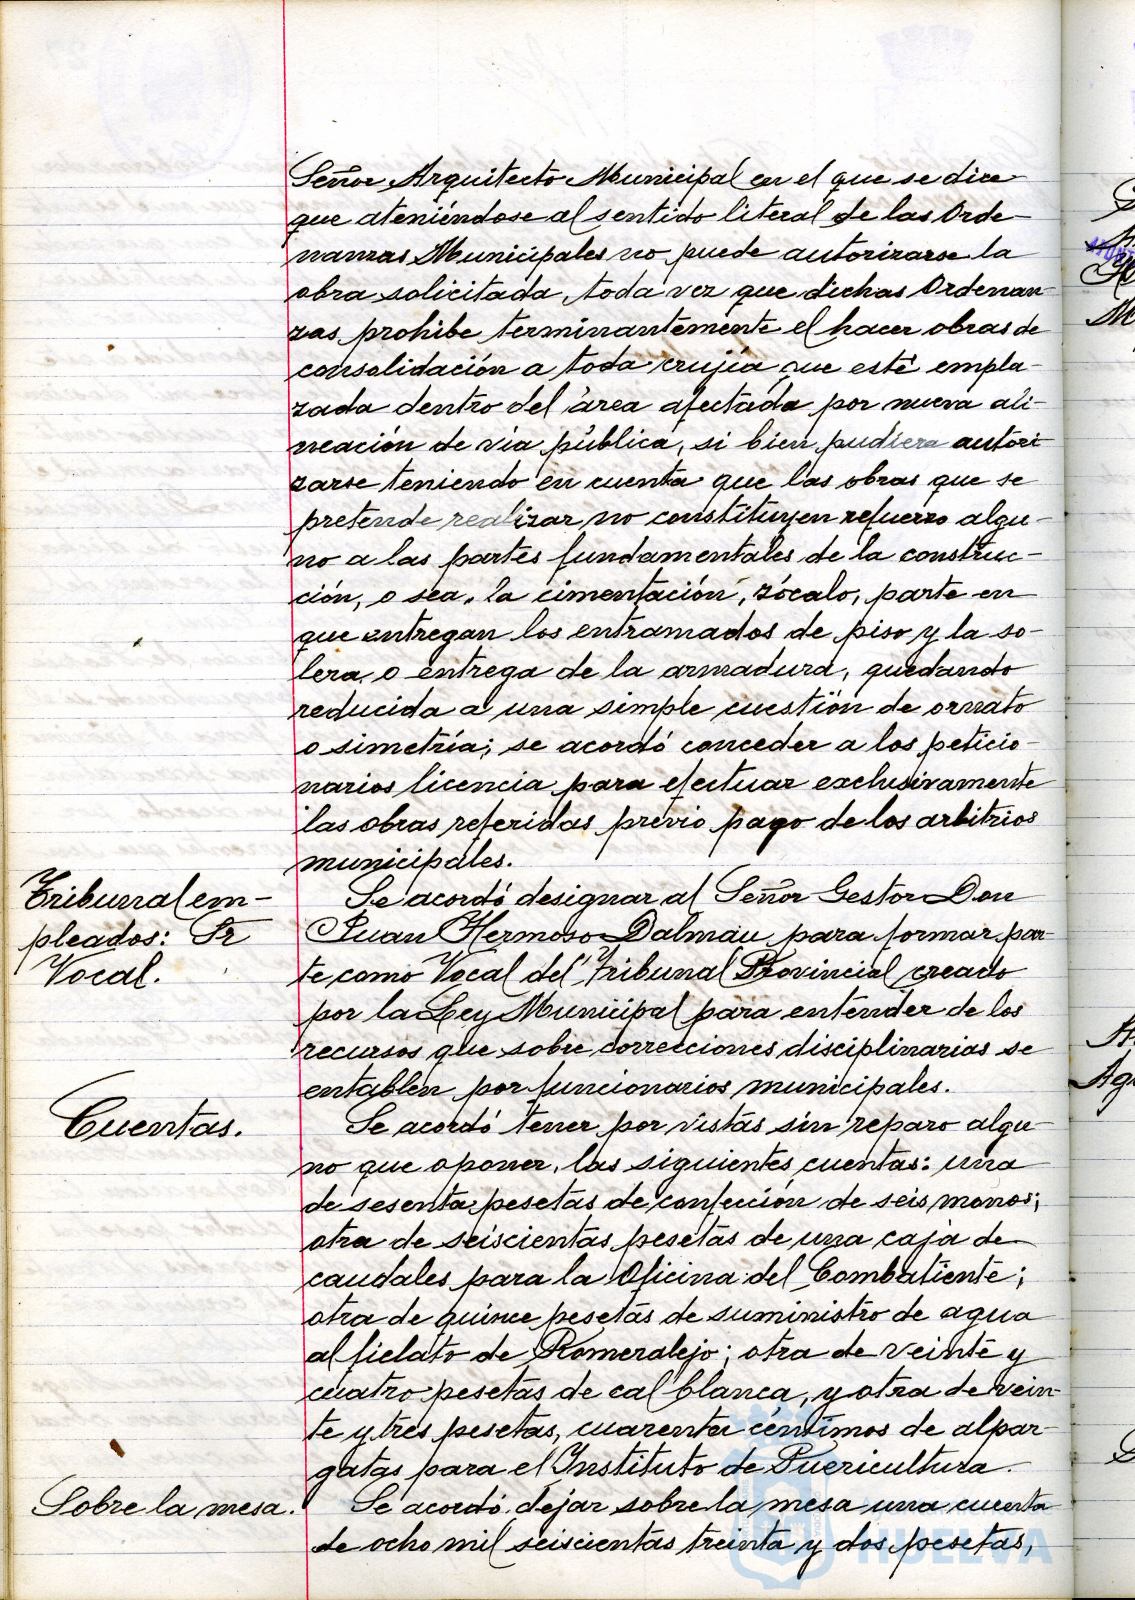 Señor Arquitecto Municipal en el que se dice
que ateniéndose al sentido literal de las Orde-
nanzas Municipales no puede autorizarse la
obra solicitada, toda vez que dichas Ordenan-
zas prohibe terminantemente el hacer obras de
consolidación a toda crujía que esté empla-
zada dentro del área afectada por nueva ali-
neación de vía pública, si bien pudiera autori-
zarse teniendo en cuenta que las obras que se
pretende realizar no constituyen refuerzo algu-
no a las partes fundamentales de la construc-
ción, o sea, la cimentación, zócalo, parte en
que entregan los entramados de piso y la so-
lera, o entrega de la armadura, quedando
reducida a una simple cuestión de ornato
o simetría; se acordó conceder a los peticio-
narios licencia para efectuar exclusivamente
las obras referidas previo pago de los arbitrios
municipales.
Tribunal em-
pleados: Sr
Vocal.
Se acordó designar al Señor Gestor Don
Juan Hermoso Dalmau para formar par-
te como Vocal del Tribunal Provincial creado
por la Ley Municipal para entender de los
recursos que sobre correcciones disciplinarias se
entablen por funcionarios municipales.
Cuentas.
Se acordó tener por vistas sin reparo algu-
no que oponer, las siguientes cuentas: una
de sesenta pesetas de confección de seis monos;
otra de seiscientas pesetas de una caja de
caudales para la Oficina del Combatiente;
otra de quince pesetas de suministro de agua
al fielato de Romeralejo; otra de veinte y
cuatro pesetas de cal blanca, y otra de vein-
te y tres pesetas, cuarenta céntimos de alpar-
gatas para el Instituto de Puericultura.
Sobre la mesa.
Se acordó dejar sobre la mesa una cuenta
de ocho mil seiscientas treinta y dos pesetas,
HUELVA